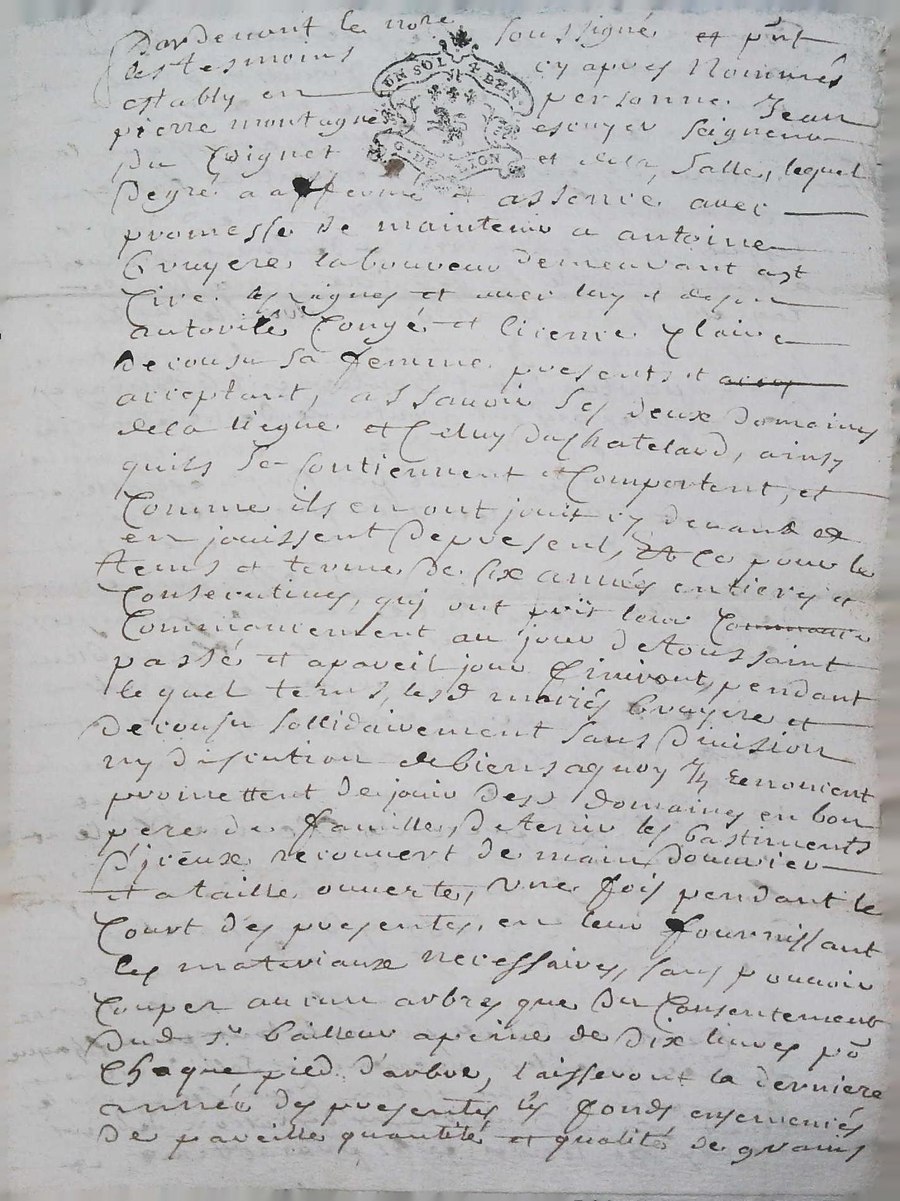 Pardevant le no.re soussigné et p̄nt
les tesmoins cy apres Nommés
estably en personne Jean
pierre montagne escuyer Seigneur
Du Poignet et dela Salle, lequel
De gré a affermé et assencé avec
promesse de maintenir a antoine
Bruyere laboureur demeurant
et avec luy et de son
autorité Congé et licence Claire
Decousu sa femme presents et
acceptant, assavoir ses deux Domaines
dela Vigne et Celuy du Chatelard, ainsy
quils se soutiennent et Comportent, et
Comme ils en ont jouit cy devant et
en jouissent de present, Et Ce pour le
tems et terme de six années entieres et
Consecutives, qui ont prit leur
Commancement au jour de toussaint
passé et apareil jour finiront, pendant
lequel tems, lesd mariés Bruyere et
Decousu sollidairement sans Division
ny discution de biens aquoy ils renoncent
promettent de jouir desd domaines en bon
pere de famille, De tenir les bastiments
recouvert de main Douvrier
et a taille ouverte, une fois pendant le
Court des presentes, en leur fournissant
les materiaux necessaires, sans pouvoir
Couper aucun arbres que du Consentement
Dud Sr. Bailleur apeine de Dix livres po
Chaque pied D'arbre, laisseront la derniere
année des presentes les fonds ensemencés
De pareille quantité et qualité de grains
UN SOL 4 DEN.
G. DE LYON